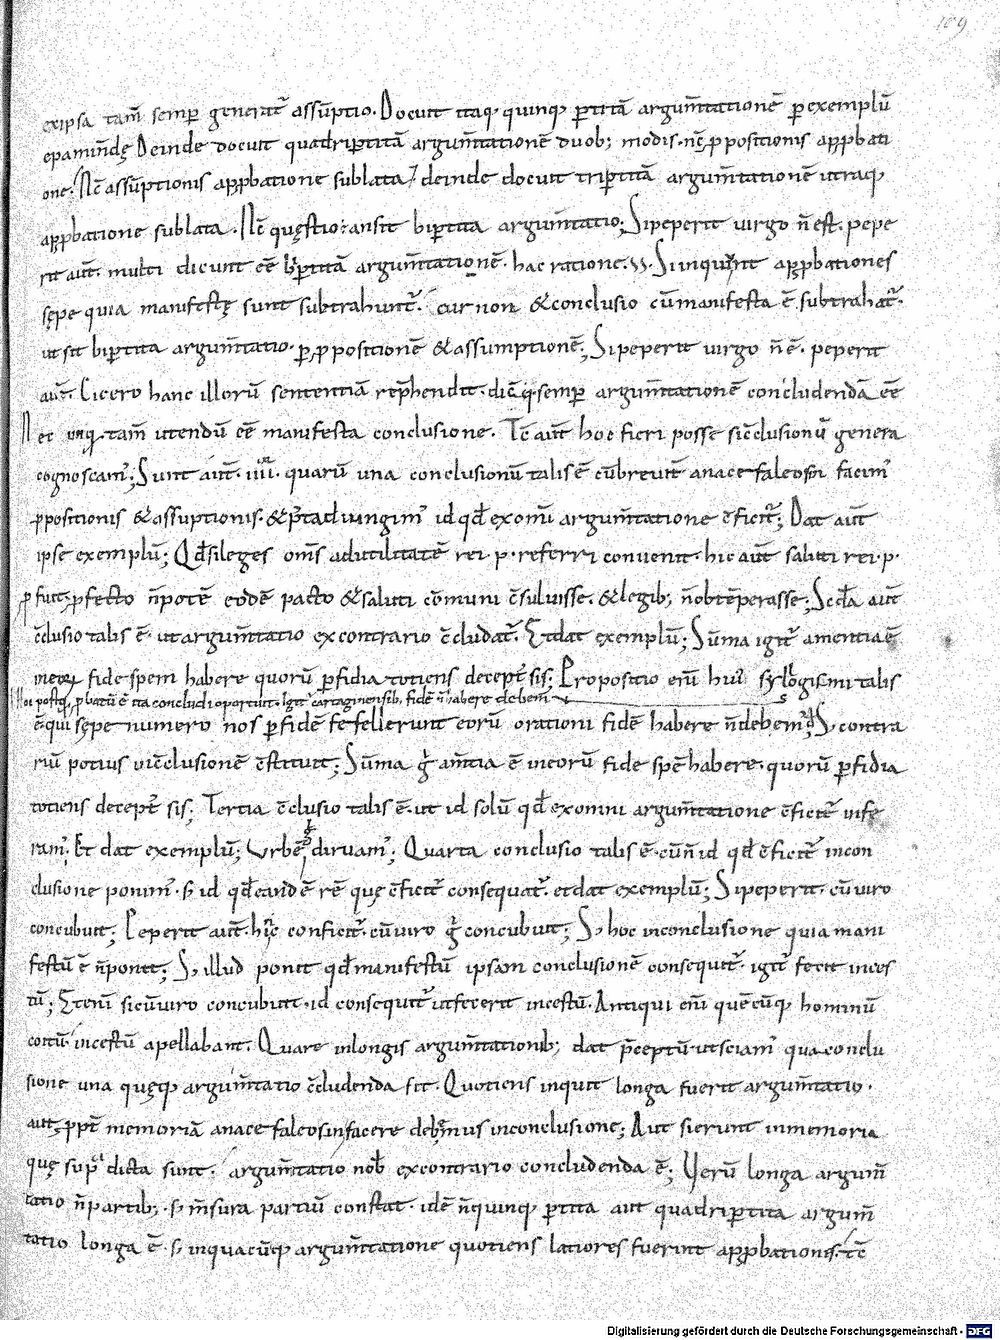 109
exipsa tam̄ semp̄ generat᷑ assūptio. Docuit itaq; quinq; ꝑtitā argum̄tationē ꝑ exemplū
epaminūdę Deinde docuit quadriꝑtitā argum̄tationē duob; modis. nc̄ ꝓpositionis apꝓbati
one. Nc̄ assūptionis apꝓbatione sublata deinde docuit triꝑtitā argum̄tationē utraq;
apꝓbatione sublata. Nc̄ quęstio transit biꝑtita argum̄tatio; Si peperit uirgo n̄ est. pepe
rit aut̄. multi dicunt eē biꝑtitā argum̄tationē. hac ratione. Si inquiunt apꝓbationes
sępe quia manifestę sunt subtrahunt᷑. cur non & conclusio cū manifesta ē subtrahat᷑.
ut sit biꝑtita argum̄tatio. ꝑ ꝓpositionē & assumptionē; Si peperit uirgo n̄ ē. peperit
aut̄. Cicero hanc illorū sententiā rep̄hendit. dic̄ q; semp̄ argum̄tationē concludendā eē
Nec unq; tam̄ utendū eē manifesta conclusione. Tc̄ aut̄ hoc fieri posse si c̄clusionū genera
cognoscam᷒; Sunt aut̄ .iiii. quarū una conclusionū talis ē cū breuit̄ anacefaleosin facim᷒
ꝓpositionis & assūptionis. & p̄t adiungim᷒ id qd̄ ex omī argum̄tatione c̄ficit᷑; Dat aut̄
ipse exemplū; Qd̄ si leges om̄s ad utilitatē rei .p. referri conuenit. hic aut̄ saluti rei .p.
ꝓfuit. ꝓfecto n̄ potē eodē pacto & saluti cōmuni c̄suluisse. & legib; n̄ obtēperasse; Scd̄a aut̄
c̄clusio talis ē. ut argum̄tatio ex contrario c̄cludat᷑. Et dat exemplū; Sūma igit᷑ amentia ē
in eoꝝ fide spem habere quorū ꝑfidia totiens decept᷒ sis; Propositio enī hui᷒ syllogismi talis
postq; ꝓbatū ē ita concludi oportuit. Igit᷑ cartaginensib; fidē n̄ habere debem᷒
ē. qui sępe numero nos ꝑ fidē fefellerunt eorū orationi fidē habere n̄ debem᷒; S; contra
riū potius ui c̄clusionē c̄stituit; Sūma g̊ am̄tia ē in eorū fide spē habere. quorū ꝑfidia
totiens decept᷒ sis; Tertia c̄clusio talis ē. ut id solū qd̄ ex omni argum̄tatione c̄ficit᷑ infe
ram᷒; Et dat exemplū; Urbē diruam᷒; Quarta conclusio talis ē. cū n̄ id qd̄ c̄ficit᷑ in con
clusione ponim᷒. s; id qd̄ eandē rē quę c̄ficit᷑ consequat᷑. et dat exemplū; Si peperit. cū uiro
concubuit; Peperit aut̄. hic conficit᷑. cū uiro g̊ concubuit; S; hoc in conclusione quia mani
festū ē n̄ ponit; S; illud ponit qd̄ manifestū ipsam conclusionē consequit᷑. igit᷑ fecit inces
tū; Etenī si cū uiro concubuit. id consequit᷑ ut fecerit incestū. Antiqui enī quēcūq; hominū
coitū incestū apellabant. Quare in longis argum̄tationib; dat p̄ceptū. ut sciam᷒ qua conclu
sione una quęq; argum̄tatio c̄cludenda sit. Quotiens inquit longa fuerit argum̄tatio.
aut ꝓpt̄ memoriā anacefaleosin facere debem᷒ in conclusione; Aut si erunt in memoria
quę sup̄ dicta sunt. argum̄tatio nob̄ ex contrario concludenda ē; Uerū longa argum̄
tatio n̄ partib; s; m̄sura partiū constat. idē n̄ quinq; ꝑtita aut quadriꝑtita argum̄
tatio longa ē. s; in quacūq; argum̄tatione quotiens latiores fuerint apꝓbationes. tc̄
Digitalisierung gefördert durch die Deutsche Forschungsgemeinschaft - DFG